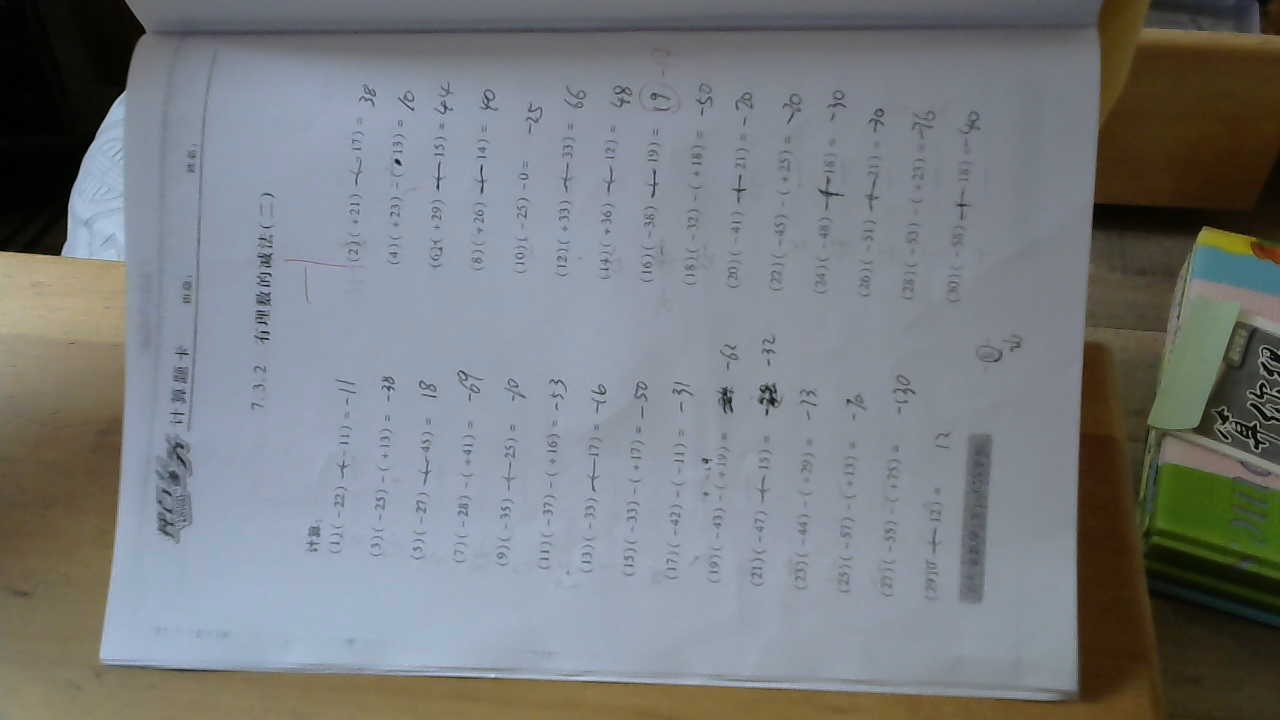 计算题卡 班级: 姓名:
7.3.2 有理数的减法(二)
计算:
(1)(-22)-(-11)=-11
(2)(+21)-(-17)= 38
(3)(-25)-(+13)= -38
(4)(+23)-(+13)= 10
(5)(-27)-(-45)= 18
(6)(+29)-(-15)= 44
(7)(-28)-(+41)= -69
(8)(+26)-(-14)= 40
(9)(-35)-(-25)= -10
(10)(-25)-0= -25
(11)(-37)-(+16)= -53
(12)(+33)-(-33)= 66
(13)(-33)-(-17)= -16
(14)(+36)-(-12)= 48
(15)(-33)-(+17)= -50
(16)(-38)-(-19)= 19
(17)(-42)-(-11)= -31
(18)(-32)-(+18)= -50
(19)(-43)-(+19)= -62
(20)(-41)-(-21)= -20
(21)(-47)-(-15)= -32
(22)(-45)-(+25)= -20
(23)(-44)-(+29)= -73
(24)(-48)-(-18)= -30
(25)(-57)-(+13)= -70
(26)(-51)-(-21)= -30
(27)(-55)-(+75)= -130
(28)(-53)-(+23)= -76
(29)0-(-12)= 12
(30)(-58)-(-18)= -40
算你狠